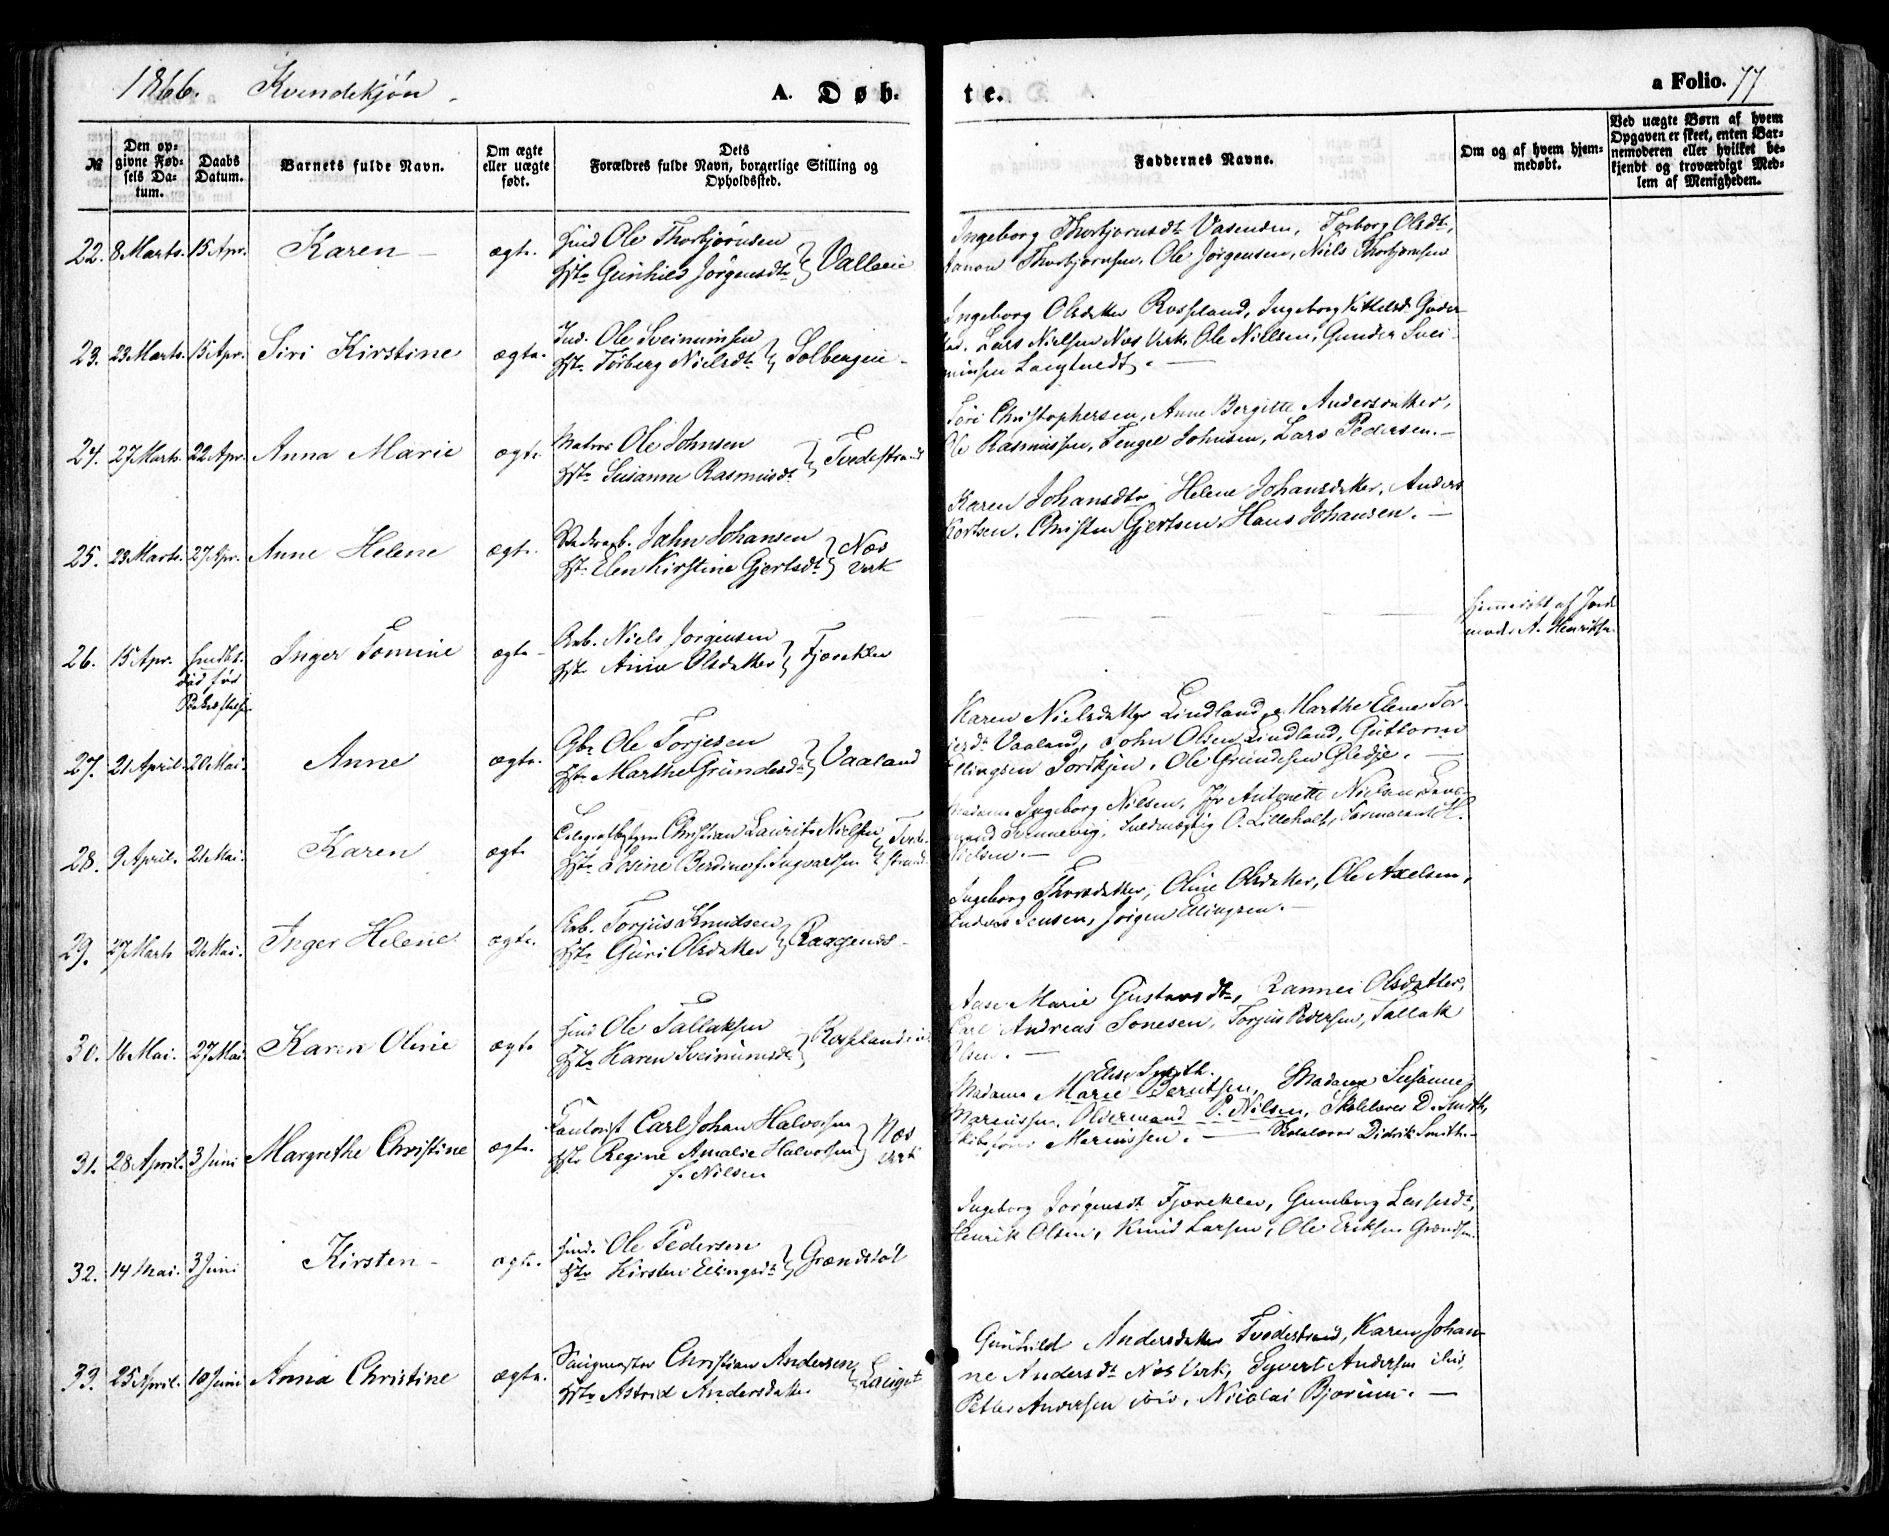 1866. Kvindekjøn.
A. Døb-
te.
a Folio. 77
№
Den op-
givne Fød-
sels Da-
tum.
Daabs
Datum.
Barnets fulde Navn.
Om ægte
eller uægte
født.
Dets
Forældres fulde Navn, borgerlige Stilling og
Opholdssted.
Faddernes Navne.
Om og af hvem hjem-
medøbt.
Ved uægte Børn af hvem
Opgaven er skeet, enten Bar-
nemoderen eller hvilket be-
kjendt og troværdigt Med-
lem af Menigheden.
22. 8 Marts. 15 Apr. Karen – ægte.
Huusmd Ole Thorbjørnsen
Hst. Gunhild Jørgensdtr } Valleeie
Ingeborg Thorbjørnsdt. Vasenden, Torborg Olsdt,
Thorbjørnsen, Ole Jørgensen, Niels Thorbjørnsen
23. 23 Marts. 15 Apr. Siri Kirstine ægte.
Ind. Ole Sveinunsen
Hst. Tørberg Nielsdt. } Solbergeie –
Ingeborg Olsdatter Rosseland, Ingeborg Kittelsd. Goder-
stad. Lars Nielsen Næs Værk, Ole Nielsen, Gunder Svei-
nunsen Langtvedt. –
24. 27 Marts. 22 Apr. Anna Marie ægte.
Matros Ole Johnsen
Hst. Susanne Rasmusdt. } Tvedestrand
Tøri Christophersen, Anne Bergitte Andersdatter,
Ole Rasmussen, Tengel Johnsen, Lars Pedersen. –
25. 23 Marts. 27 Apr. Anne Helene ægte.
Jahn Johansen
Hst. Elen Kirstine Gjertsdt. } Næs
Verk
Karen Johansdtr, Helene Johansdatter, Anders
Christen Gjertsen, Hans Johansen. –
26. 15 Apr. Inger Tomine ægte –
død før
Arb. Niels Jørgensen
Hst. Anne Olsdatter } Fjæreklev
Hjemmedøbt af Jord-
moder A. Henriksen
27. 21 April. 20 Mai. Anne ægte.
Gbr. Ole Torjesen
Hst. Marthe Grundesdt } Vaaland
Karen Nielsdatter Lindland, Marthe Elene Tor-
jersdt. Vaaland, John Olsen Lindland, Guttorm
Ellingsen Ole Grundesen Gledje. –
28. 9 April. 21 Mai. Karen ægte
Telegrafbestyrer Christian Laurits Nielsen
Hst. Berdine f. Ingvartsen } Tvede-
strand.
Madame Ingeborg Nielsen, Jfr Antonette Nielsen,
O. Lilleholt,
Nielsen. –
29. 27 Marts 21 Mai. Inger Helene ægte.
Arb. Torjus Knudsen
Hst. Guri Olsdatter } Raagenæs –
Ingeborg Thorsdatter, Oline Olsdatter, Ole Axelsen,
Anders Jensen, Jørgen Ellingsen. –
30. 16 Mai. 27 Mai. Karen Oline ægte
Huusmd Ole Tallaksen
Hst. Karen Sveinunsdt } Rosselandeie
Aase Marie Gustavsdt., Rannei Olsdatter,
Carl Andreas Tonesen, Torjus Pedersen, Tallak
Olsen. –
31. 28 April. 3 Juni Margrethe Christine ægte.
Cantorist Carl Johan Halvorsen
Hst. Regine Amalie Halvorsen
f. Nilsen } Næs
Værk
Else Smith.
Madame Marie Berntsen, Madame Susanne
Mariussen, Oldermand P. Nilsen, Skolelærer D. Smith,
Skibsfører Mariussen. – Skolelærer Didrik Smith. –
32. 14 Mai. 3 Juni Kirsten – ægte.
Huusmd. Ole Pedersen
Hst. Kirsten Ellingsdt } Grændstøl
Ingeborg Jørgensdt. Fjæreklev, Gunnborg Lassesdt.,
Henrik Olsen, Knud Larsen, Ole Eriksen Grændsen.
33. 25 April. 10 Juni Anna Christine ægte.
Saugmester Christian Andersen
Hst. Astrid Andersdatter } Lauget
Gunhild Andersdatter Tvedestrand, Karen Johan-
ne Andersdt. Næs Værk, Syvert Andersen ibid,
Petter Andersen ibid, Nicolai Bjorum. –